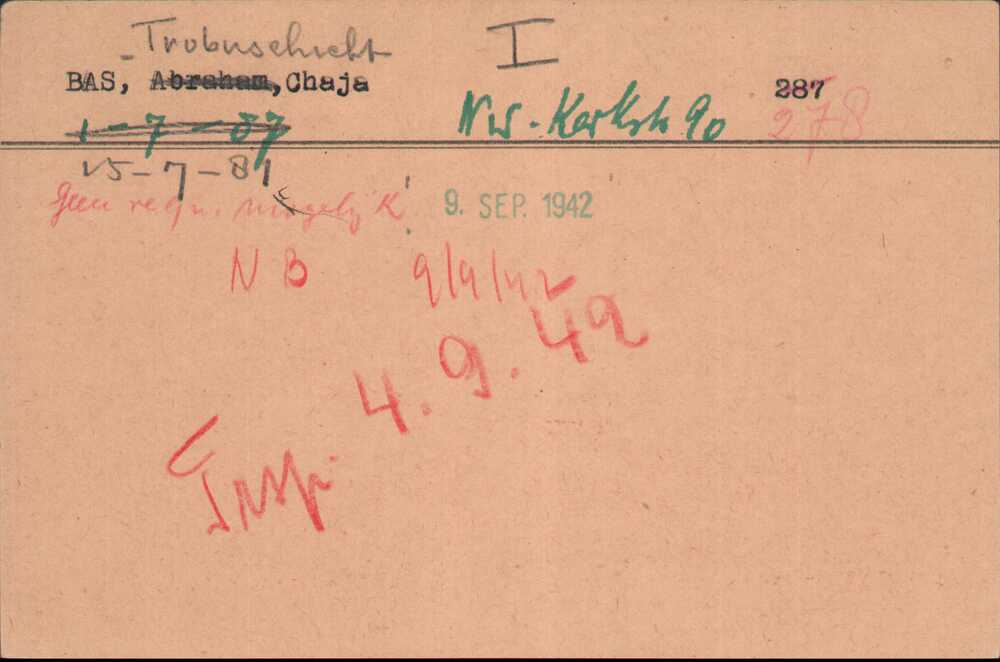 -Trobuschicht I
BAS, Abraham, Chaja 287
1-7-87 Nw. Kerkstr 90 278
25-7-81
Geen reqn. mogelijk 9. SEP. 1942
N B 9/9/42
4.9.42
Insp.